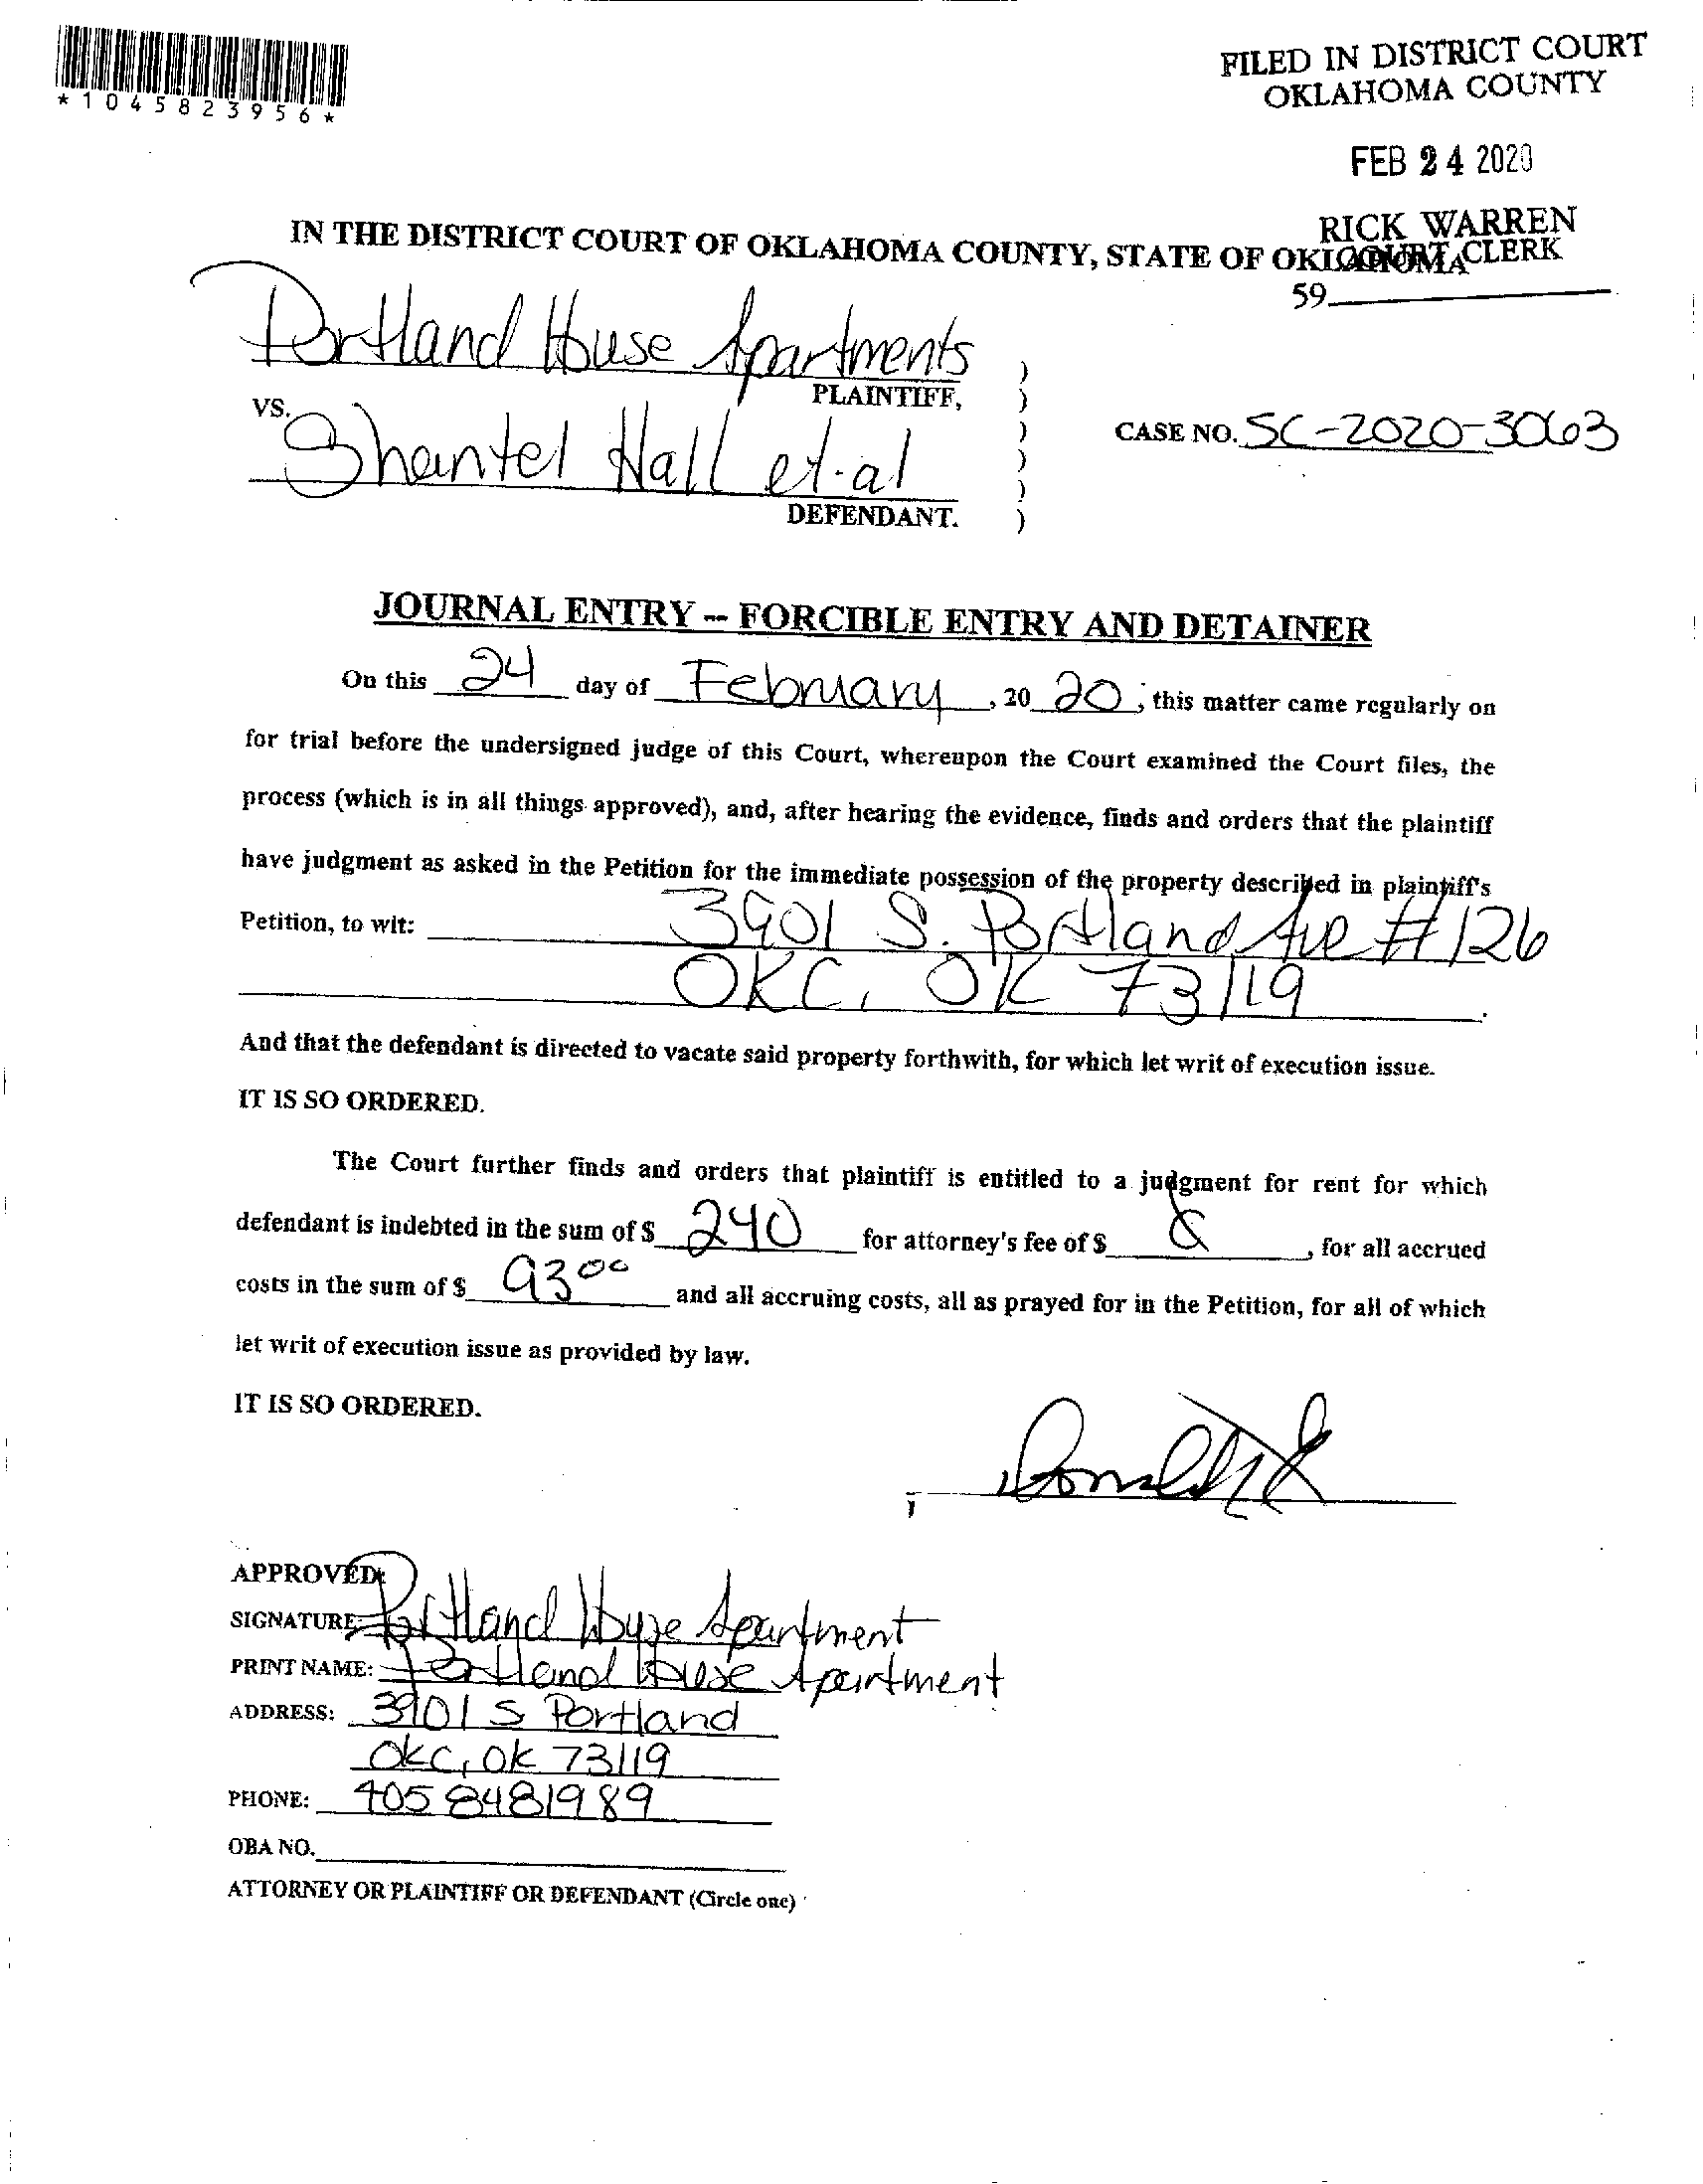 *1045823956*
FILED IN DISTRICT COURT
OKLAHOMA COUNTY
FEB 24 2020
RICK WARREN
COURT CLERK
59
IN THE DISTRICT COURT OF OKLAHOMA COUNTY, STATE OF OKLAHOMA
Portland House Apartments )
PLAINTIFF, )
VS. ) CASE NO. SC-2020-3063
Shantel Hall et.al )
)
DEFENDANT. )
JOURNAL ENTRY -- FORCIBLE ENTRY AND DETAINER
On this 24 day of February, 20 20; this matter came regularly on
for trial before the undersigned judge of this Court, whereupon the Court examined the Court files, the
process (which is in all things approved), and, after hearing the evidence, finds and orders that the plaintiff
have judgment as asked in the Petition for the immediate possession of the property described in plaintiff's
Petition, to wit: 3901 S. Portland Ave #126
OKC, OK 73119.
And that the defendant is directed to vacate said property forthwith, for which let writ of execution issue.
IT IS SO ORDERED.
The Court further finds and orders that plaintiff is entitled to a judgment for rent for which
defendant is indebted in the sum of $ 240 for attorney's fee of $ , for all accrued
costs in the sum of $ 93 00 and all accruing costs, all as prayed for in the Petition, for all of which
let writ of execution issue as provided by law.
IT IS SO ORDERED.
APPROVED:
SIGNATURE: Portland House Apartment
PRINT NAME: Portland House Apartment
ADDRESS: 3901 S Portland
OKC, OK 73119
PHONE: 405 8481989
OBA NO.
ATTORNEY OR PLAINTIFF OR DEFENDANT (Circle one)